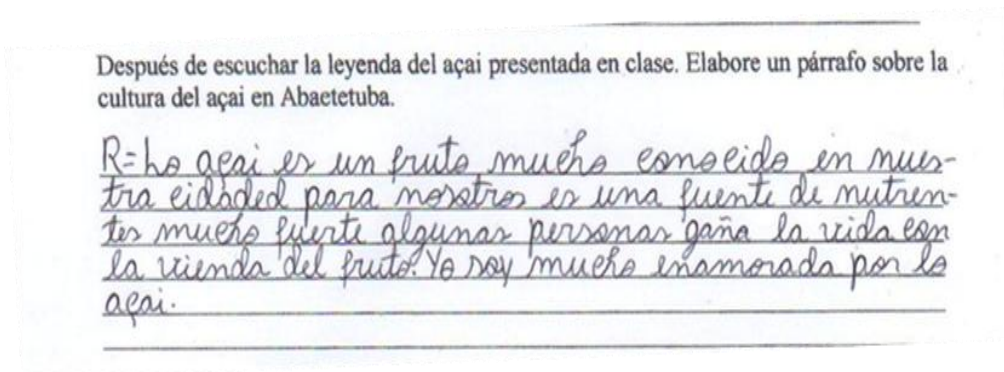 Después de escuchar la leyenda del açai presentada en clase. Elabore un párrafo sobre la
cultura del açai en Abaetetuba.
R= Lo açai es un fruto mucho conocido en nues-
tra cidàded para nosotros es una fuente de nutren-
tes mucho fuerte algunas personas gaña la vida con
la vienda del fruto. Yo soy mucho enamorada por lo
açai.